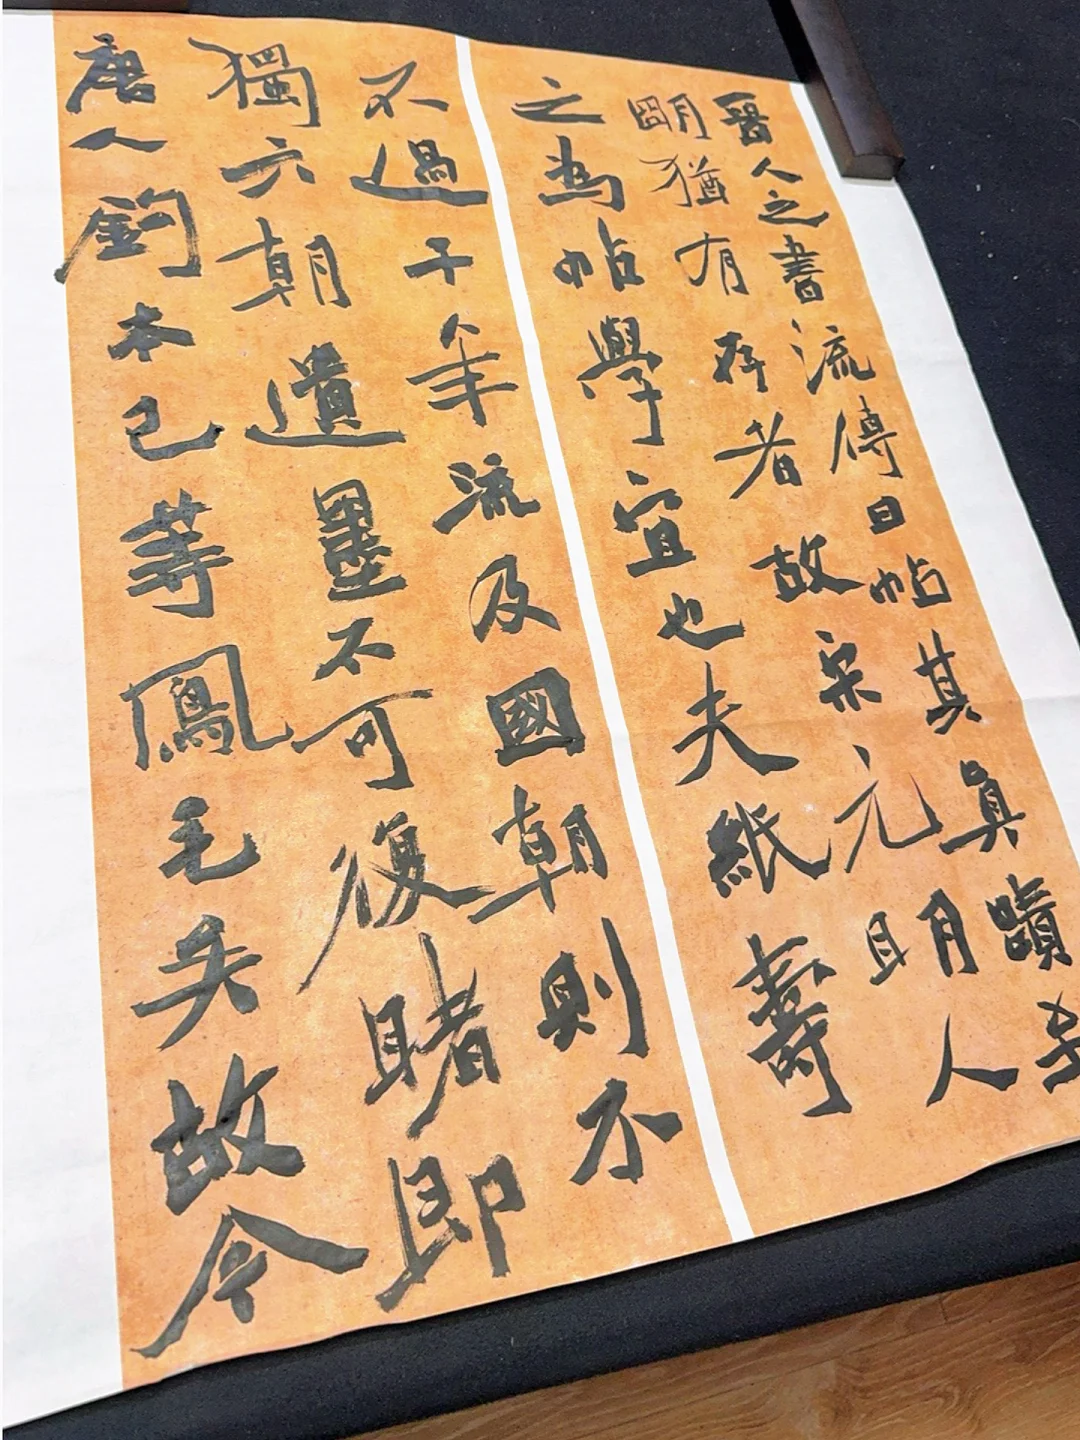 晉人之書流傳曰帖其眞蹟至
明猶有存者故宋元明人
之為帖學宜也夫紙壽
不過千年流及國朝則不
獨六朝遺墨不可復睹即
唐人鈎本已等鳳毛矣故今